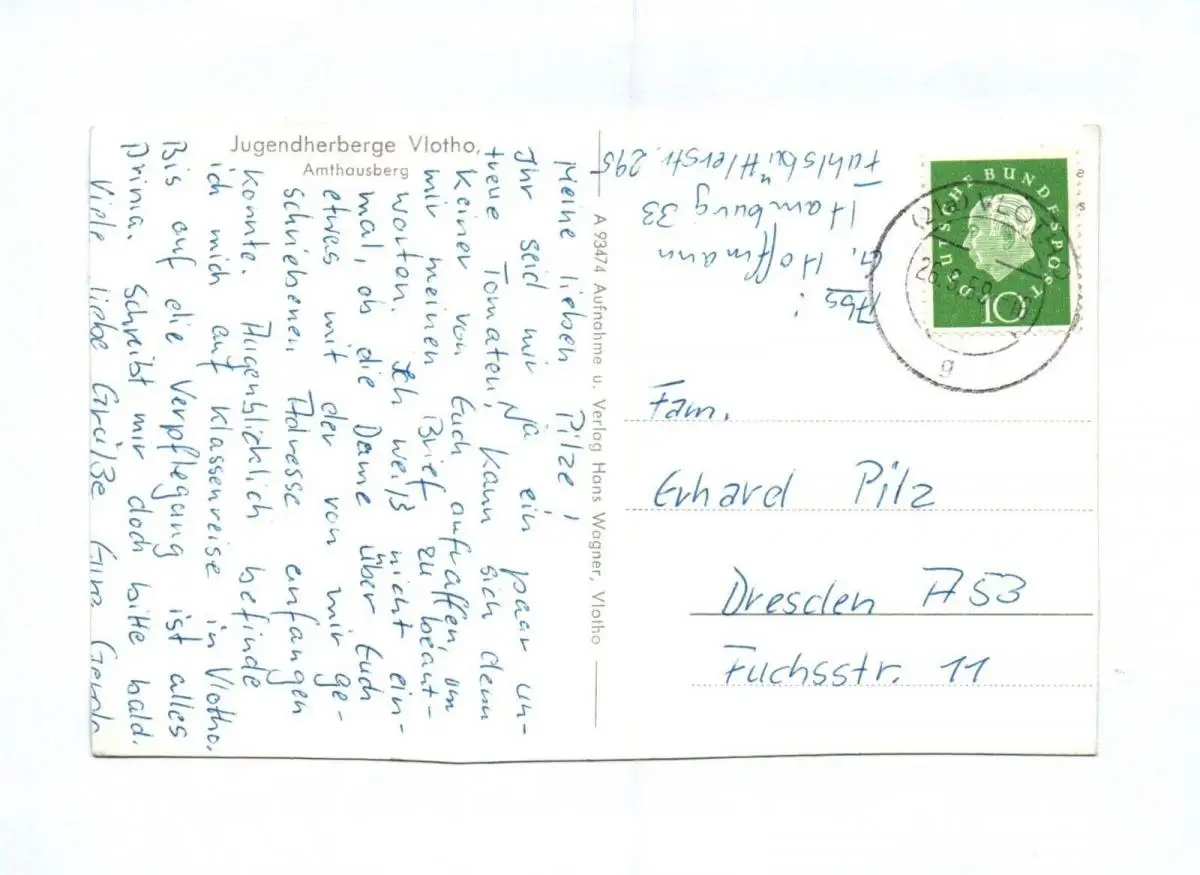 Jugendherberge Vlotho,
Amthausberg
Meine lieben Pilze!
Ihr seid mir ja ein paar un-
treue Tomaten, kann sich denn
keiner von Euch aufraffen, um
mir meinen Brief zu beant-
worten. Ich weiß nicht ein-
mal, ob die Dame über Euch
etwas mit der von mir ge-
schriebenen Adresse anfangen
konnte. Augenblicklich befinde
ich mich auf Klassenreise in Vlotho.
Bis auf die Verpflegung ist alles
prima. Schreibt mir doch bitte bald.
Viele liebe Grüße
A 93474 Aufnahme u. Verlag Hans Wagner, Vlotho
Abs:
G. Hoffmann
Hamburg 33
Fuhlsbüttlerstr. 295
DEUTSCHE BUNDESPOST
10
(21a) VLOTHO
26.9.59
g
Fam.
Erhard Pilz
Dresden A53
Fuchsstr. 11